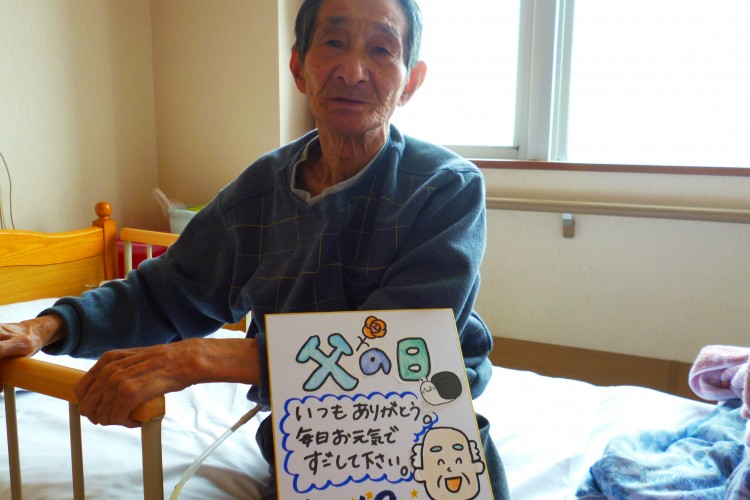 父の日
いつもありがとう。
毎日お元気で
すごして下さい。